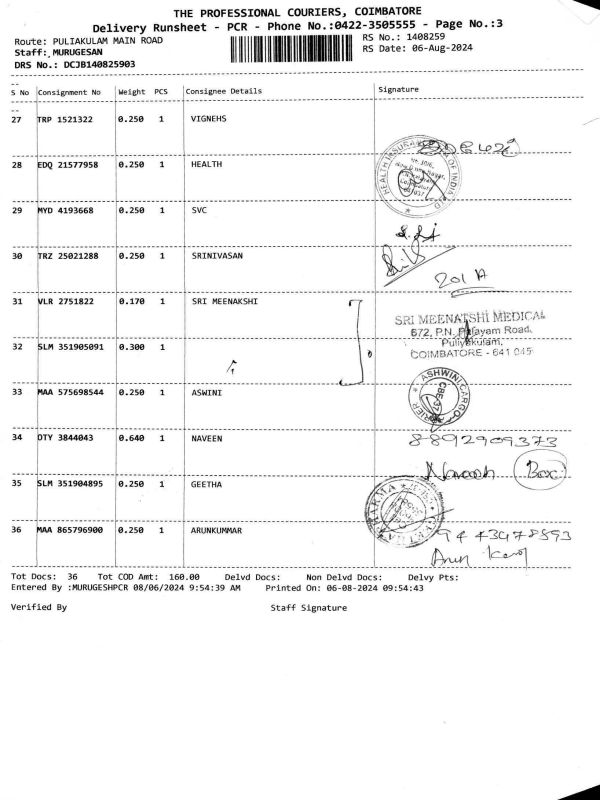 THE PROFESSIONAL COURIERS, COIMBATORE
Delivery Runsheet - PCR - Phone No.:0422-3505555 - Page No.:3
Route: PULIAKULAM MAIN ROAD
RS No.: 1408259
Staff: MURUGESAN
RS Date: 06-Aug-2024
DRS No.: DCJB140825903
S No Consignment No Weight PCS Consignee Details Signature
27 TRP 1521322 0.250 1 VIGNEHS
28 EDQ 21577958 0.250 1 HEALTH
29 MYD 4193668 0.250 1 SVC
30 TRZ 25021288 0.250 1 SRINIVASAN
201 A
31 VLR 2751822 0.170 1 SRI MEENAKSHI
SRI MEENATSHI MEDICAL
672, P.N. Palayam Road,
Puliyakulam,
COIMBATORE - 641 045
32 SLM 351905091 0.300 1
33 MAA 575698544 0.250 1 ASWINI
ASHWINI CARGO
34 DTY 3844043 0.640 1 NAVEEN
8892909373
35 SLM 351904895 0.250 1 GEETHA
36 MAA 865796900 0.250 1 ARUNKUMMAR
9443478593
Tot Docs: 36 Tot COD Amt: 160.00 Delvd Docs: Non Delvd Docs: Delvy Pts:
Entered By :MURUGESHPCR 08/06/2024 9:54:39 AM Printed On: 06-08-2024 09:54:43
Verified By Staff Signature